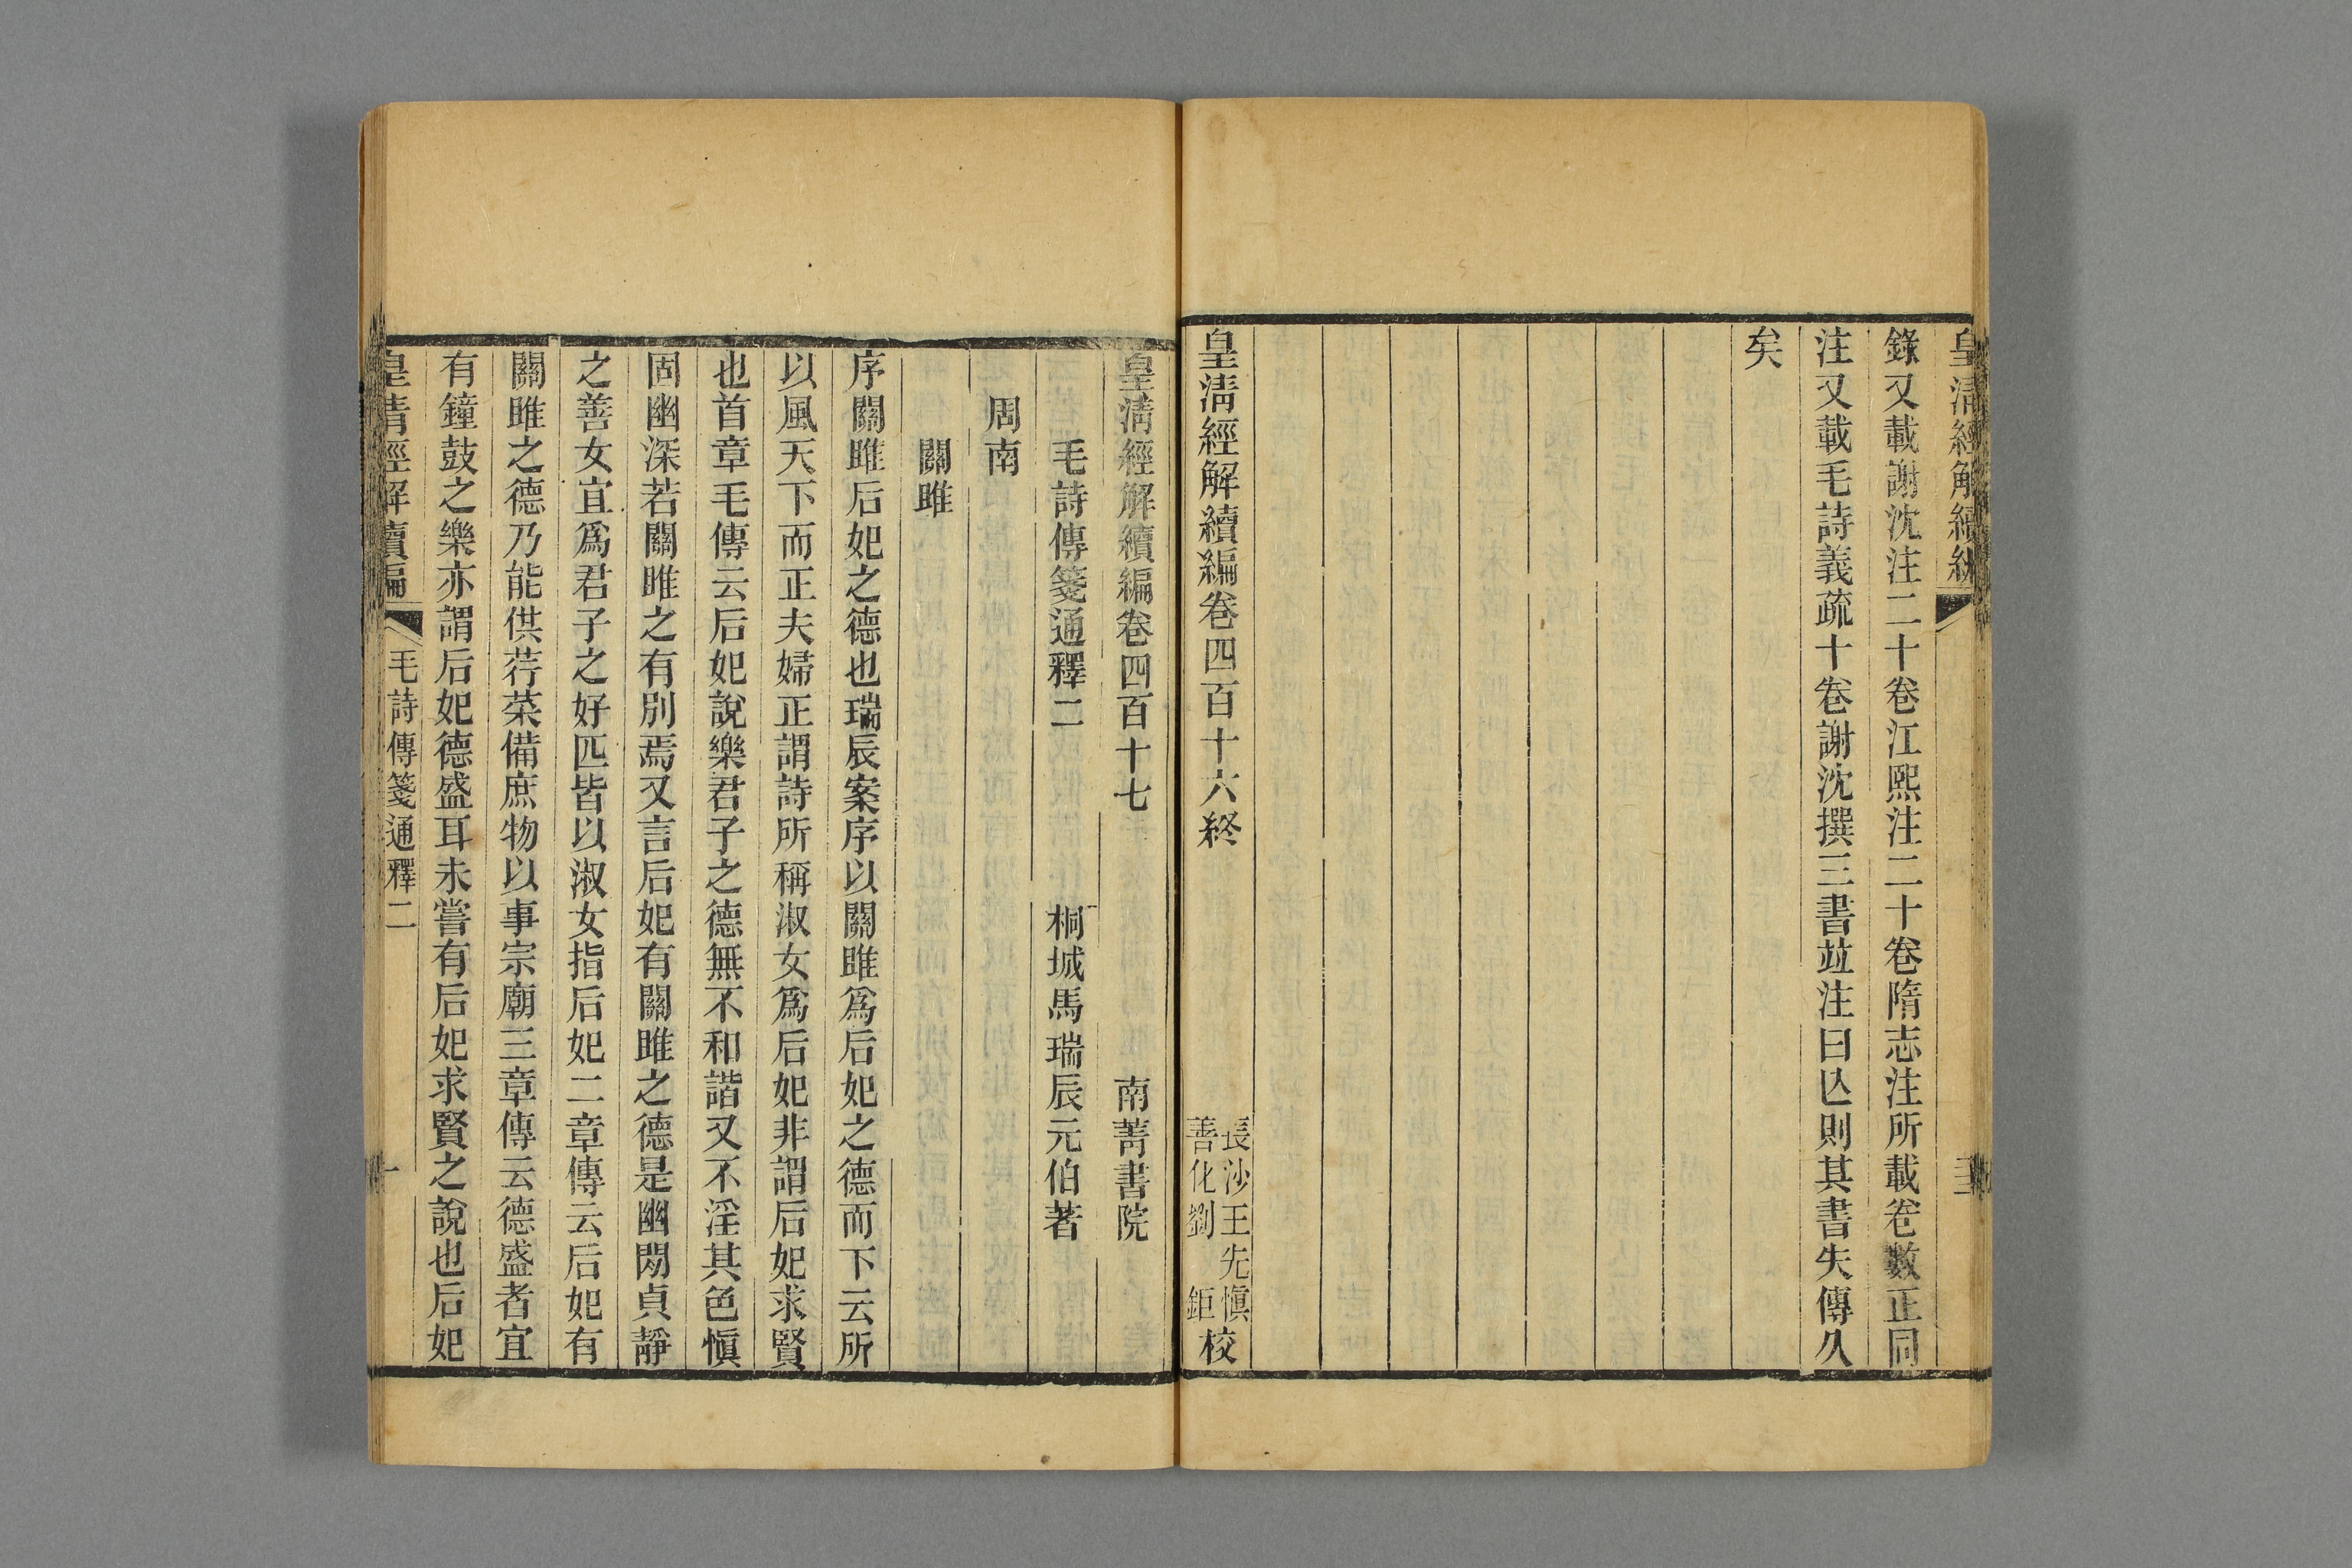 皇清經解續編
錄又載謝沈注二十卷江熙注二十卷隋志注所載卷數正同
注又載毛詩義疏十卷謝沈撰三書竝注曰亾則其書失傳久
矣
皇清經解續編卷四百十六終
長沙王先愼
善化劉鉅校
皇清經解續編卷四百十七 南菁書院
毛詩傳箋通釋二 桐城馬瑞辰元伯著
周南
關雎
序關雎后妃之德也瑞辰案序以關雎爲后妃之德而下云所
以風天下而正夫婦正謂詩所稱淑女爲后妃非謂后妃求賢
也首章毛傳云后妃說樂君子之德無不和諧又不淫其色愼
固幽深若關雎之有別焉又言后妃有關雎之德是幽閒貞靜
之善女宜爲君子之好匹皆以淑女指后妃二章傳云后妃有
關雎之德乃能供荇菜備庶物以事宗廟三章傳云德盛者宜
有鐘鼓之樂亦謂后妃德盛耳未嘗有后妃求賢之說也后妃
皇清經解續編 毛詩傳箋通釋二 一